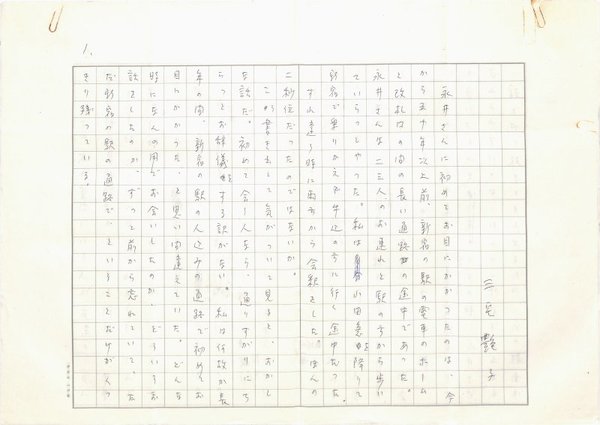 1.
三宅艶子
永井さんに初めてお目にかかったのは、今
から五年以上前、新宿の駅の電車のホーム
と改札口の間の長い通路の途中であった。
永井さんは二三人のお連れと駅の方から歩い
ていらっした。私は小田急を降りて
新宿で乗りかえ、牛込の方に行く途中だった。
すれ違う時に両方から会釈をした。ほんの
二秒位だったのではないか。
この様に書き出して気がついて見ると、おかし
な話だ。初めて会う人なら、通りすがりにち
らっとお辞儀をする訳がない。私は何故か長
年の間、新宿の駅の人込みの通路で初めてお
目にかかった、と思い間違えていた。どんな
時になんの用でお会いしたのか、どういうお
話をしたのか、ずっと前から忘れていて、た
だ新宿の駅の通路で、ということだけがくっ
きり残っている。